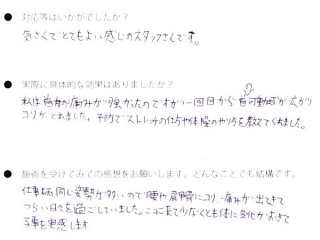 ● 対応等はいかがでしたか？
気さくでとてもよい感じのスタッフさんです。
● 実際に具体的な効果はありましたか？
私は首肩の痛みが強かったのですが一回目から可動域が広がり
コリがとれました。予防でストレッチの仕方や体操のやり方を教えてくれました。
● 施術を受けてみての感想をお願いします。どんなことでも結構です。
仕事柄同じ姿勢が多いので腰や肩甲骨にコリ、痛みが出てきて
つらい日々を過ごしていました。ここに来て少なくとも体に変化がおきて
る事を実感します